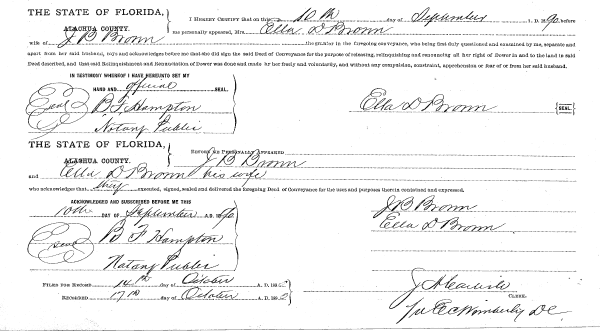 THE STATE OF FLORIDA,
ALACHUA COUNTY.
I HEREBY CERTIFY that on this 10th day of September A. D. 1890, before
me personally appeared, Mrs. Ella D Brown
wife of J B Brown the grantor in the foregoing conveyance, who being first duly questioned and examined by me, separate and
apart from her said husband, says and acknowledges before me that she did sign the said Deed of Conveyance for the purpose of releasing, relinquishing and renouncing all her right of Dower in and to the land in said
Deed described, and that said Relinquishment and Renunciation of Dower was done and made by her freely and voluntarily, and without any compulsion, constraint, apprehension or fear of or from her said husband.
IN TESTIMONY WHEREOF I HAVE HEREUNTO SET MY
HAND AND official SEAL.
Seal B F Hampton Ella D Brown SEAL
Notary Public
THE STATE OF FLORIDA,
ALACHUA COUNTY.
BEFORE ME PERSONALLY APPEARED J B Brown
and Ella D Brown his wife
who acknowledges that they executed, signed, sealed and delivered the foregoing Deed of Conveyance for the uses and purposes therein contained and expressed.
ACKNOWLEDGED AND SUBSCRIBED BEFORE ME THIS
10th DAY OF September A. D. 1890
J B Brown
Ella D Brown
Seal B F Hampton
Notary Public
FILED FOR RECORD 14th day of October A. D. 189
RECORDED 17th day of October A. D. 189
CLERK.
Wimberly D.C.